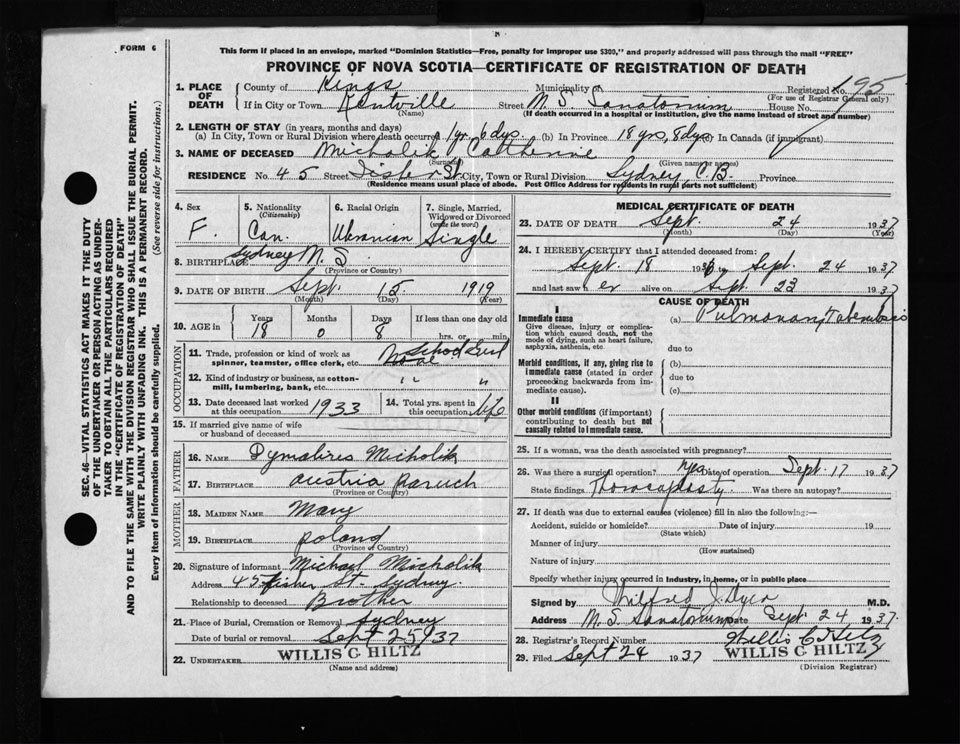 FORM 6
This form if placed in an envelope, marked "Dominion Statistics—Free, penalty for improper use $300," and properly addressed will pass through the mail "FREE"
PROVINCE OF NOVA SCOTIA—CERTIFICATE OF REGISTRATION OF DEATH
1. PLACE OF DEATH
County of Kings Municipality of Registered No. 195
(For use of Registrar General only)
If in City or Town Kentville Street N.S. Sanatorium House No.
(Name) (If death occurred in a hospital or institution, give the name instead of street and number)
2. LENGTH OF STAY (in years, months and days)
(a) In City, Town or Rural Division where death occurred 1 yr. 6 dys. (b) In Province 18 yrs, 8 dys (c) In Canada (if immigrant)
3. NAME OF DECEASED Micholik Catherine
(Surname) (Given name or names)
RESIDENCE No. 45 Street City, Town or Rural Division Sydney, C.B. Province
(Residence means usual place of abode. Post Office Address for residents in rural parts not sufficient)
4. Sex F.
5. Nationality (Citizenship) Can.
6. Racial Origin Ukranian
7. Single, Married, Widowed or Divorced (write the word) Single
8. BIRTHPLACE Sydney N.S.
(Province or Country)
9. DATE OF BIRTH Sept. 15 1919
(Month) (Day) (Year)
10. AGE in Years Months Days If less than one day
18 0 8 hrs. or min.
OCCUPATION
11. Trade, profession or kind of work as spinner, teamster, office clerk, etc. School Girl
12. Kind of industry or business, as cotton-mill, lumbering, bank, etc. " "
13. Date deceased last worked at this occupation 1933
14. Total yrs. spent in this occupation life
15. If married give name of wife or husband of deceased
FATHER
16. NAME Micholik
17. BIRTHPLACE Austria
(Province or Country)
MOTHER
18. MAIDEN NAME Mary
19. BIRTHPLACE Poland
(Province or Country)
20. Signature of informant Michael Micholik
Address 45 Fisher St. Sydney.
Relationship to deceased Brother
21. Place of Burial, Cremation or Removal Sydney
Date of burial or removal Sept 25 1937
22. UNDERTAKER WILLIS C. HILTZ
(Name and address)
MEDICAL CERTIFICATE OF DEATH
23. DATE OF DEATH Sept. 24 1937
(Month) (Day) (Year)
24. I HEREBY CERTIFY that I attended deceased from:
Sept. 18 1936 to Sept. 24 1937
and last saw er alive on Sept. 23 1937
CAUSE OF DEATH
I
Immediate cause (a) Pulmonary Tuberculosis
Give disease, injury or complication which caused death, not the mode of dying, such as heart failure, asphyxia, asthenia, etc.
due to
Morbid conditions, if any, giving rise to immediate cause (stated in order proceeding backwards from immediate cause).
(b)
due to
(c)
II
Other morbid conditions (if important) contributing to death but not causally related to immediate cause.
25. If a woman, was the death associated with pregnancy?
26. Was there a surgical operation? yes Date of operation Sept. 17 1937
State findings Thoracoplasty. Was there an autopsy?
27. If death was due to external causes (violence) fill in also the following:—
Accident, suicide or homicide? Date of injury 19
(State which)
Manner of injury
(How sustained)
Nature of injury
Specify whether injury occurred in industry, in home, or in public place
Signed by J. M.D.
Address N.S. Sanatorium Date Sept 24 1937
28. Registrar's Record Number Willis C. Hiltz
29. Filed Sept 24 1937 WILLIS C. HILTZ
(Division Registrar)
SEC. 46—VITAL STATISTICS ACT MAKES IT THE DUTY
OF THE UNDERTAKER OR PERSON ACTING AS UNDER-
TAKER TO OBTAIN ALL THE PARTICULARS REQUIRED
IN THE "CERTIFICATE OF REGISTRATION OF DEATH"
AND TO FILE THE SAME WITH THE DIVISION REGISTRAR WHO SHALL ISSUE THE BURIAL PERMIT.
WRITE PLAINLY WITH UNFADING INK. THIS IS A PERMANENT RECORD.
Every item of information should be carefully supplied. (See reverse side for instructions.)